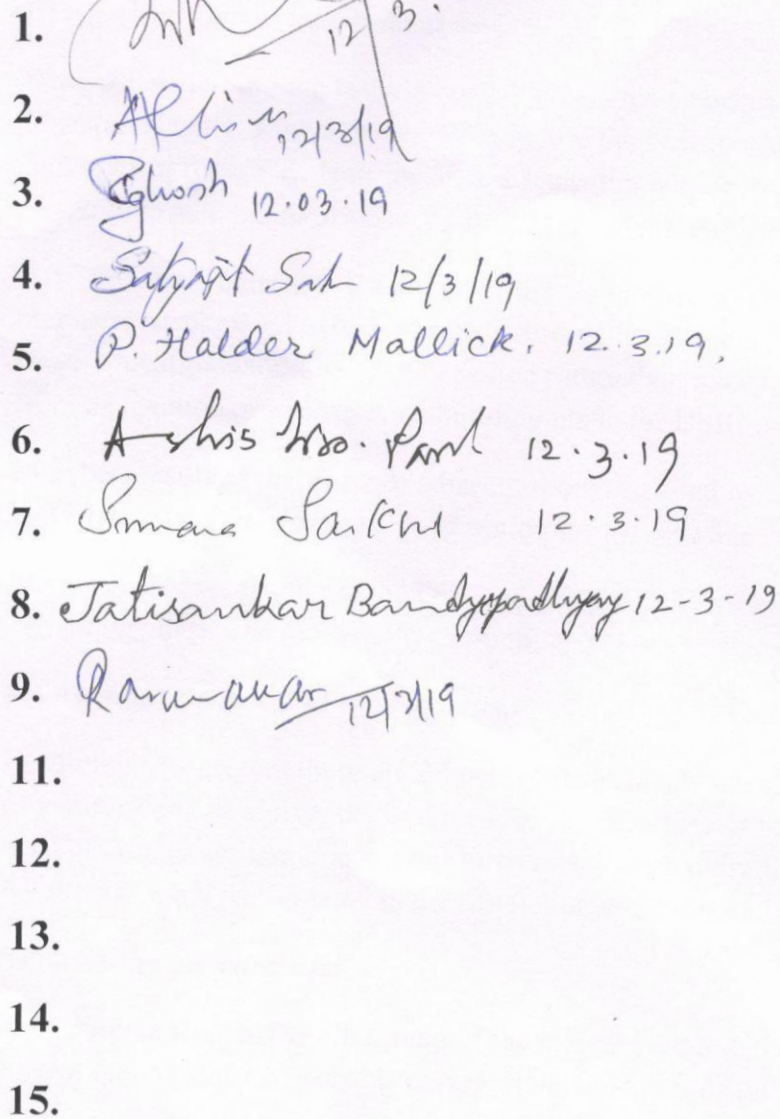 1. 12 3.
2. 12/3/19
3. Ghosh 12.03.19
4. Satyajit Sah 12/3/19
5. P. Halder Mallick. 12.3.19.
6. Ashis 12.3.19
7. Sarkar 12.3.19
8. Jatisankar Bandyopadhyay 12-3-19
9. 12/3/19
11.
12.
13.
14.
15.